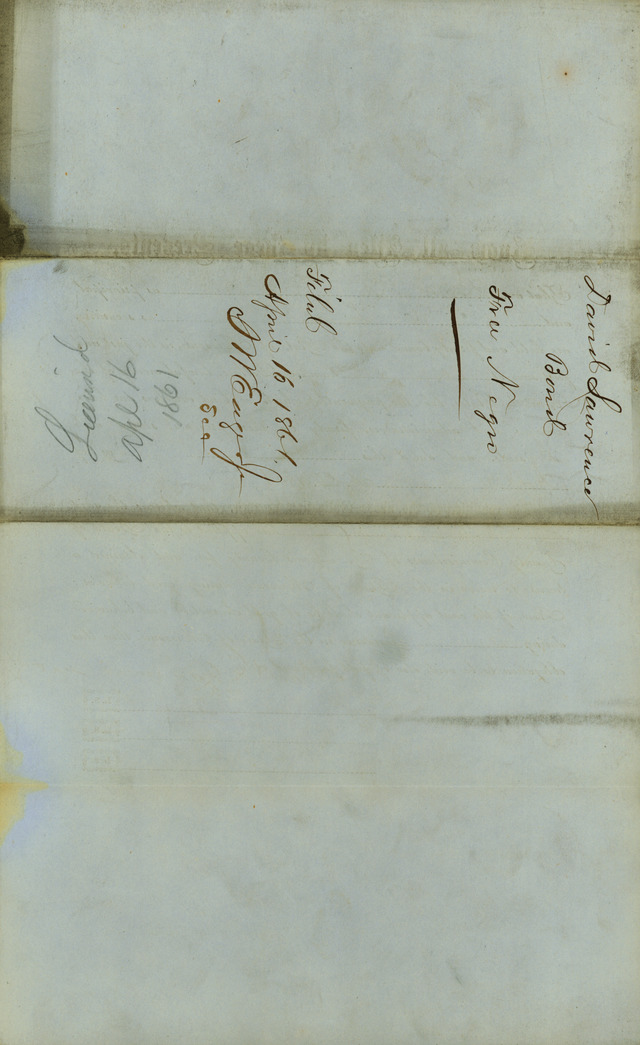 David Lawrence
Bond
Free Negro
Filed
April 16 1861.
Licensed
Apl 16
1861